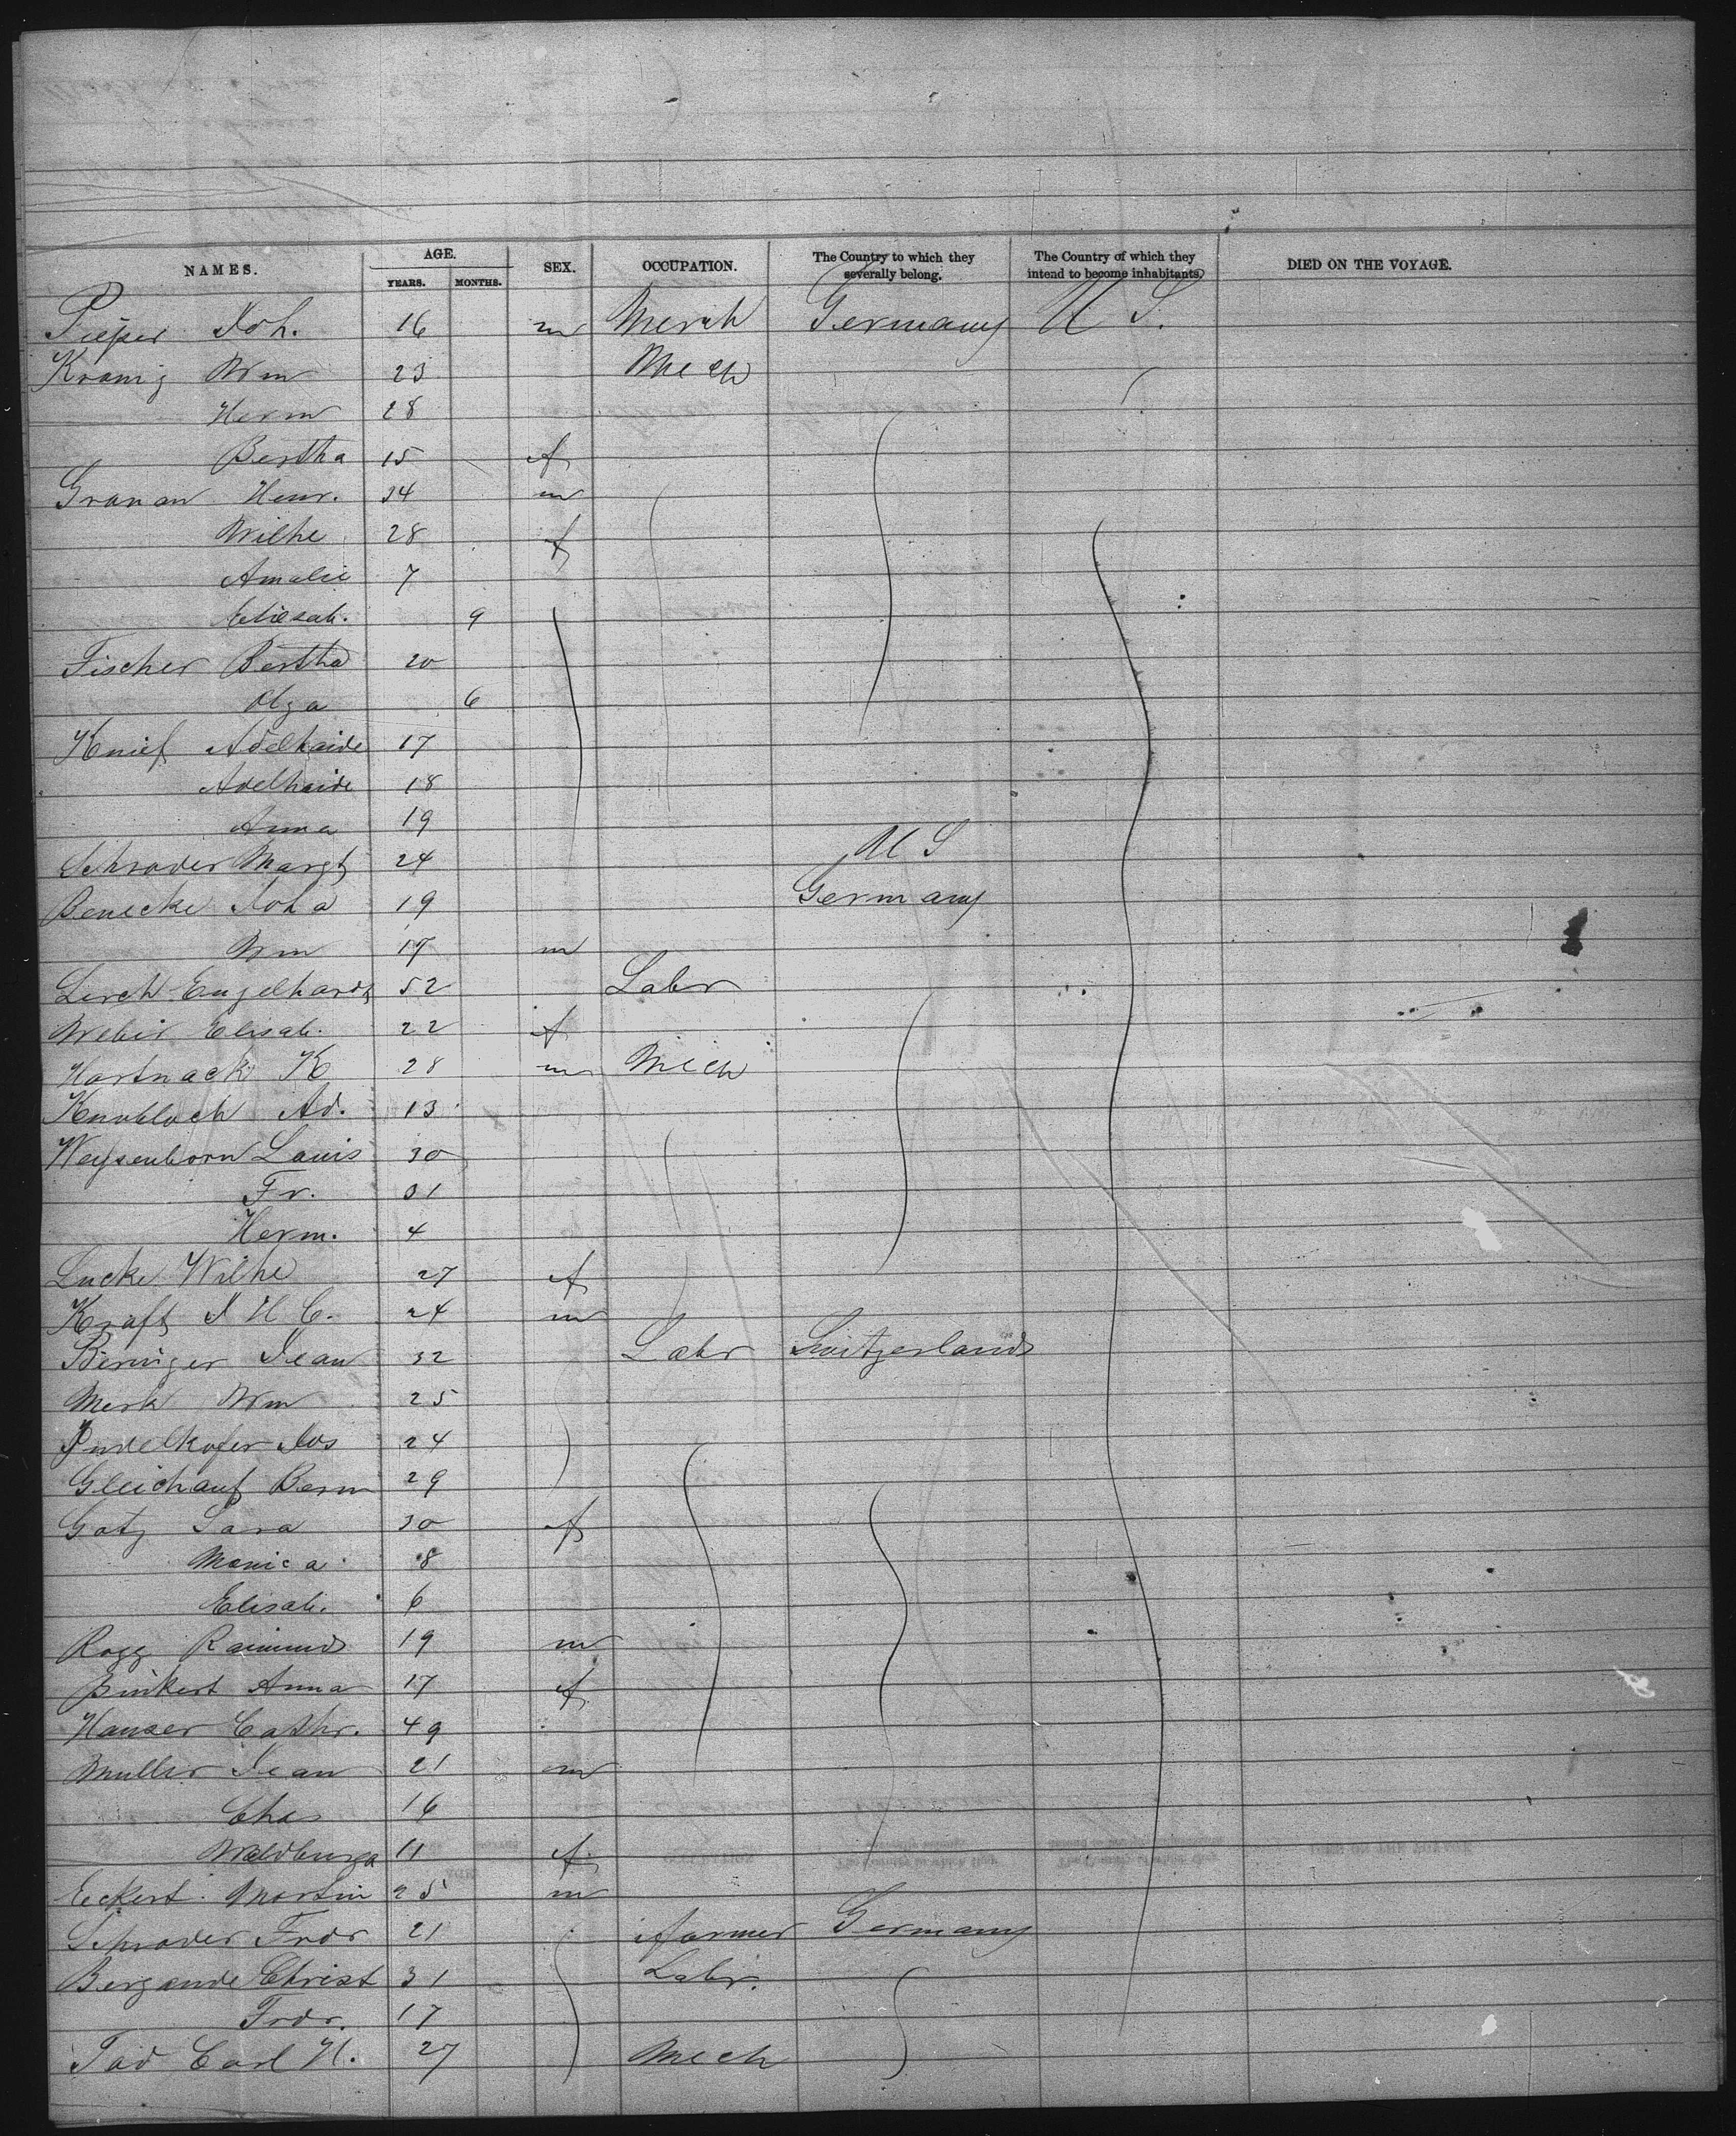 NAMES. AGE. YEARS. MONTHS. SEX. OCCUPATION. The Country to which they severally belong. The Country of which they intend to become inhabitants. DIED ON THE VOYAGE.
Pieper Joh. 16 m Merch Germany U S.
Kranig Wm 23 Mech
Herm 28
Bertha 15 f
Granan Henr. 34 m
Wilhe 28 f
Amalie 7
Eliesab. 9
Fischer Bertha 20
Olga 6
Knief Adelhaide 17
Adelhaide 18
Anna 19
Schrader Margt 24 U S
Benecke Joha 19 Germany
Wm 17 m
Lerch Engelhardt 52 Labr
Weber Elisab. 22 f
Hartnack K 28 m Mech
Knobloch Ad. 13
Weysenborn Louis 30
Fr. 31
Herm. 4
Lucke Wilhe 27 f
Kraft J H C. 24 m
Beringer Jean 32 Labr Switzerland
Merk Wm 25
Jos 24
Gleichauf Bern 29
Gotz Sara 30 f
Monica 8
Elisab. 6
Rogg Raimund 19 m
Binkert Anna 17 f
Hauser Cathr. 49
Muller Jean 21 m
Chas 16
Waldburga 11 f
Eckert Martin 25 m
Schrader Frdr 21 farmer Germany
Bergande Christ 31 Labr.
Frdr. 17
Tad Carl H. 27 Mech